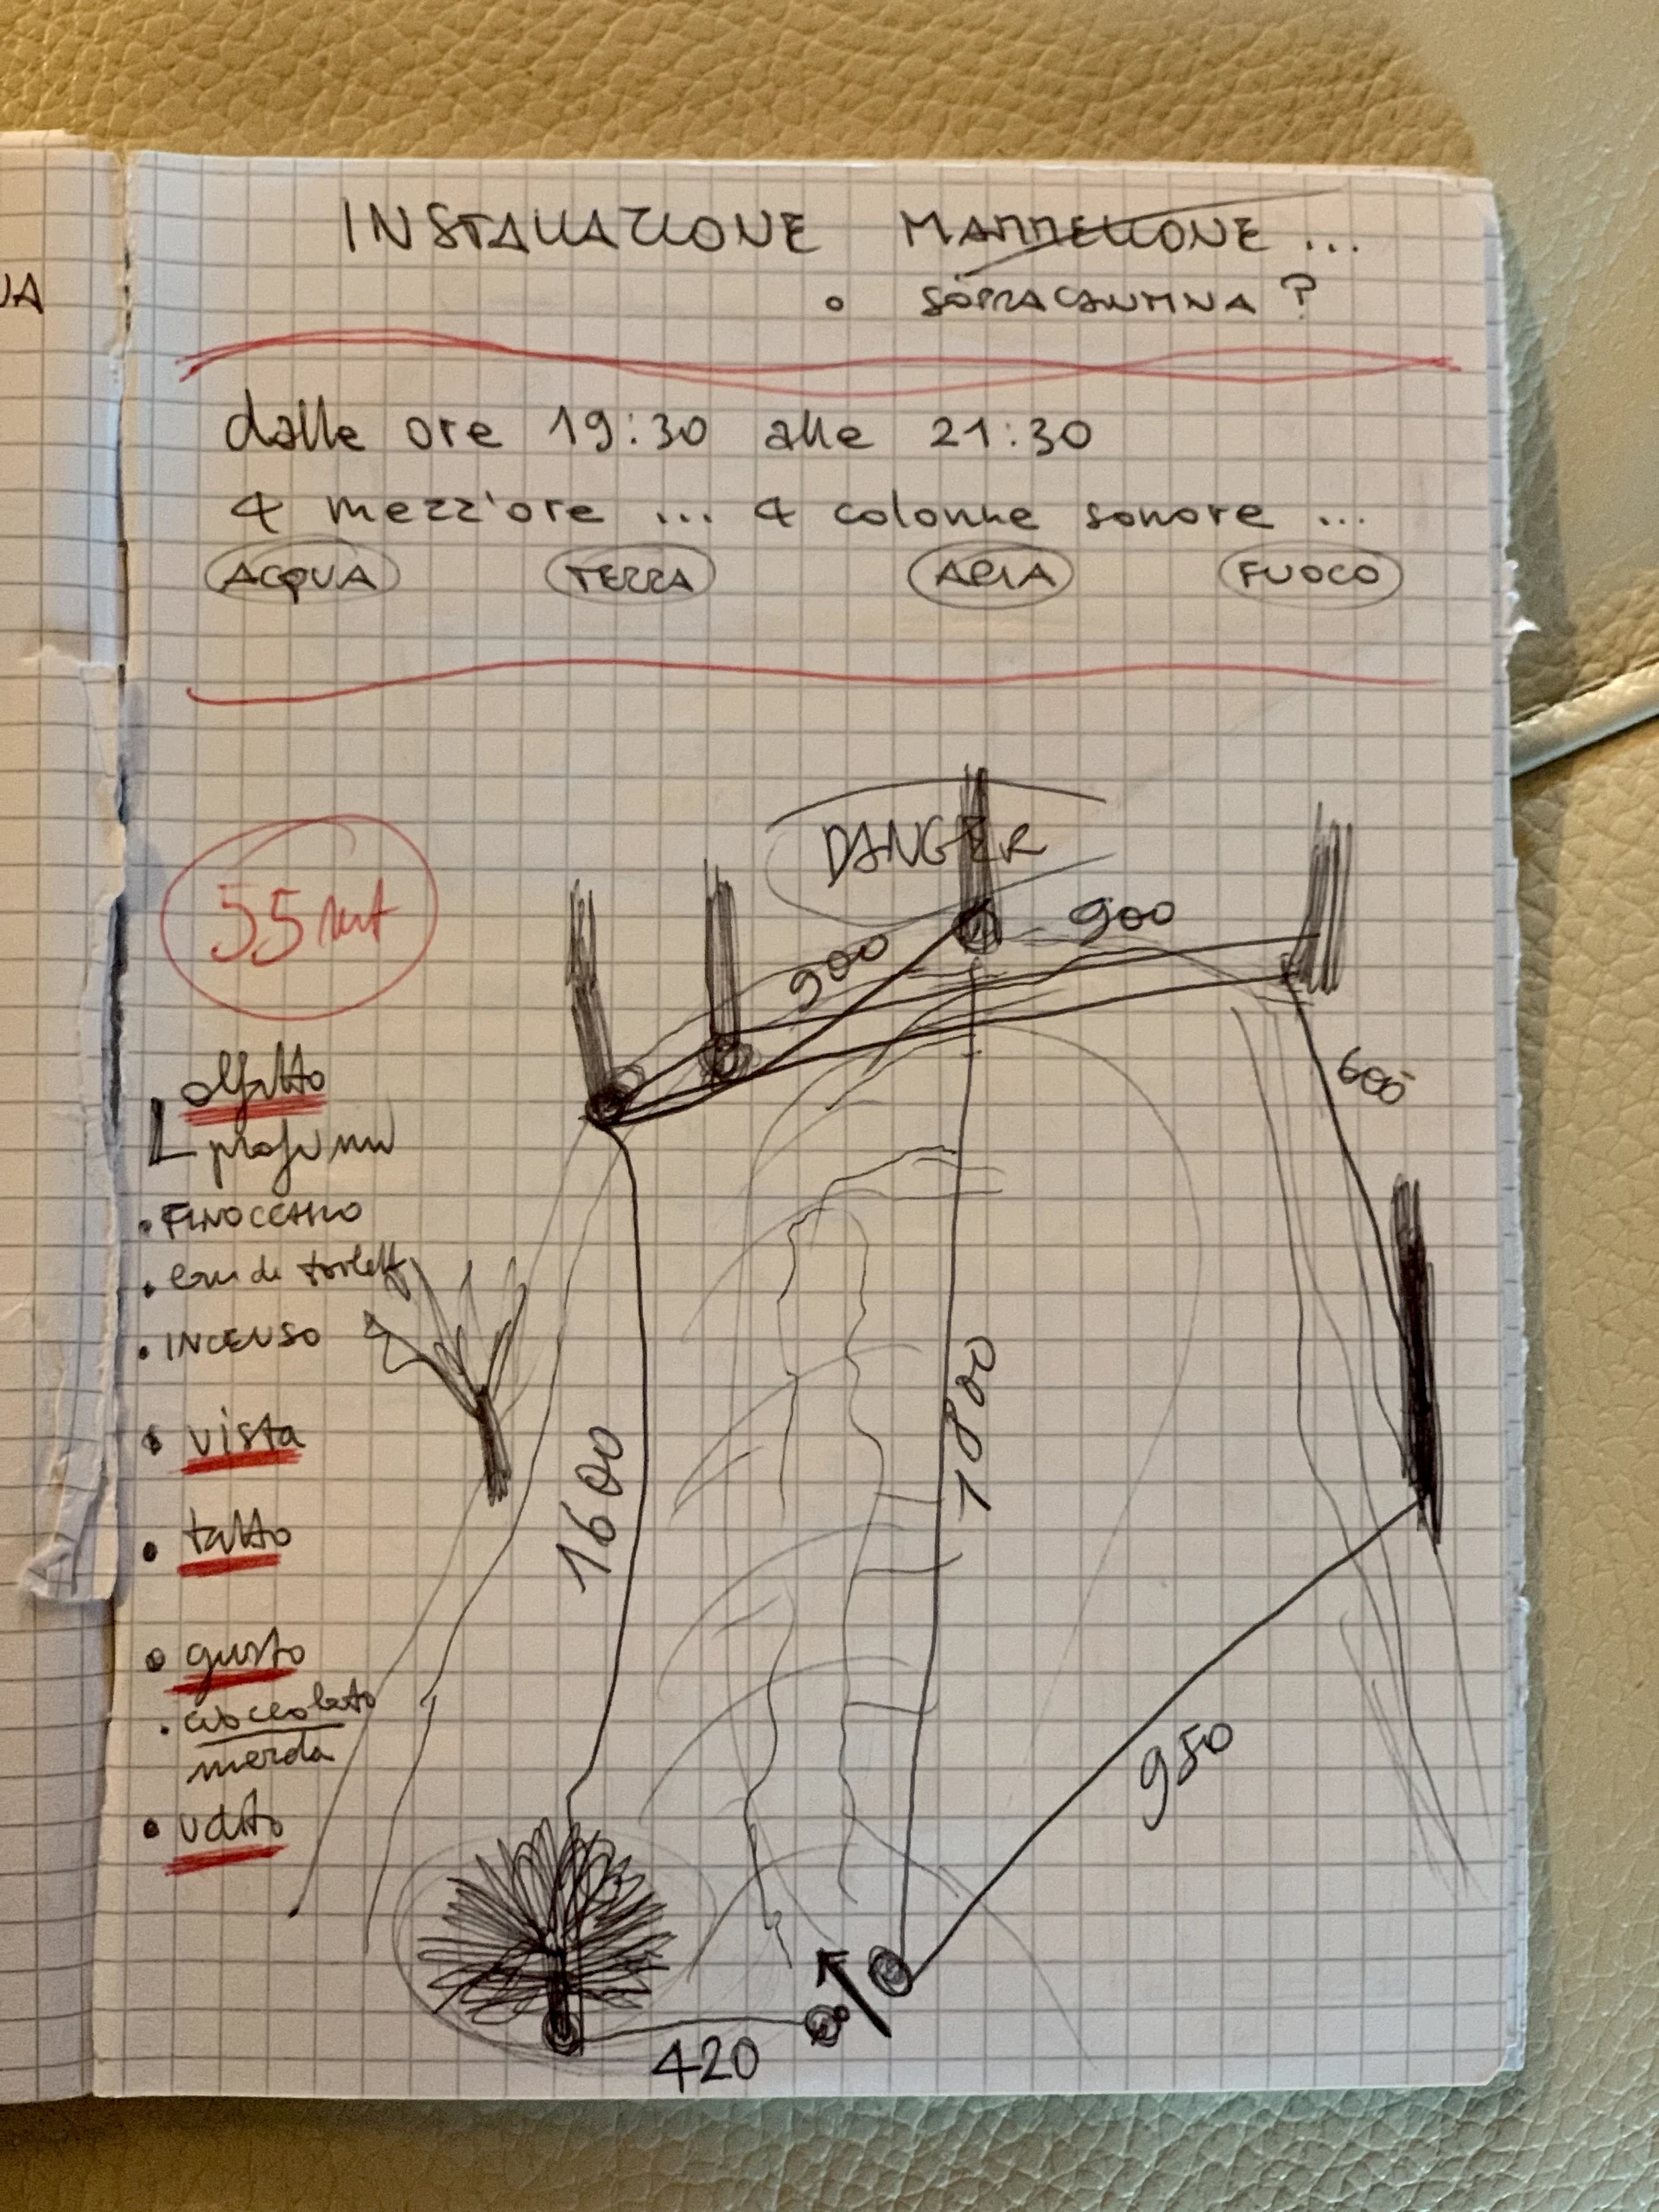 UA
INSTALLAZIONE MAMMELLONE...
o SOPRACANTINA?
dalle ore 19:30 alle 21:30
4 mezz'ore ... 4 colonne sonore ...
ACQUA TERRA ARIA FUOCO
DANGER
55 mt
900
900
600
olfatto
profumi
• FINOCCHIO
• eau de toilett
• INCENSO
• vista
• tatto
1600
1800
• gusto
• cioccolato
merda
• udito
950
420